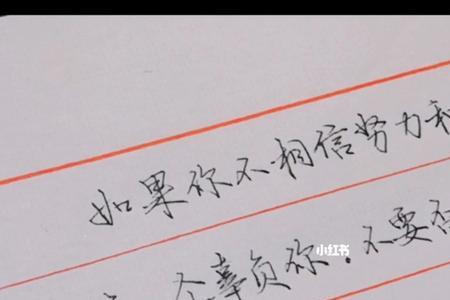 如果你不相信努力和
个辜负你.不要否
小红书